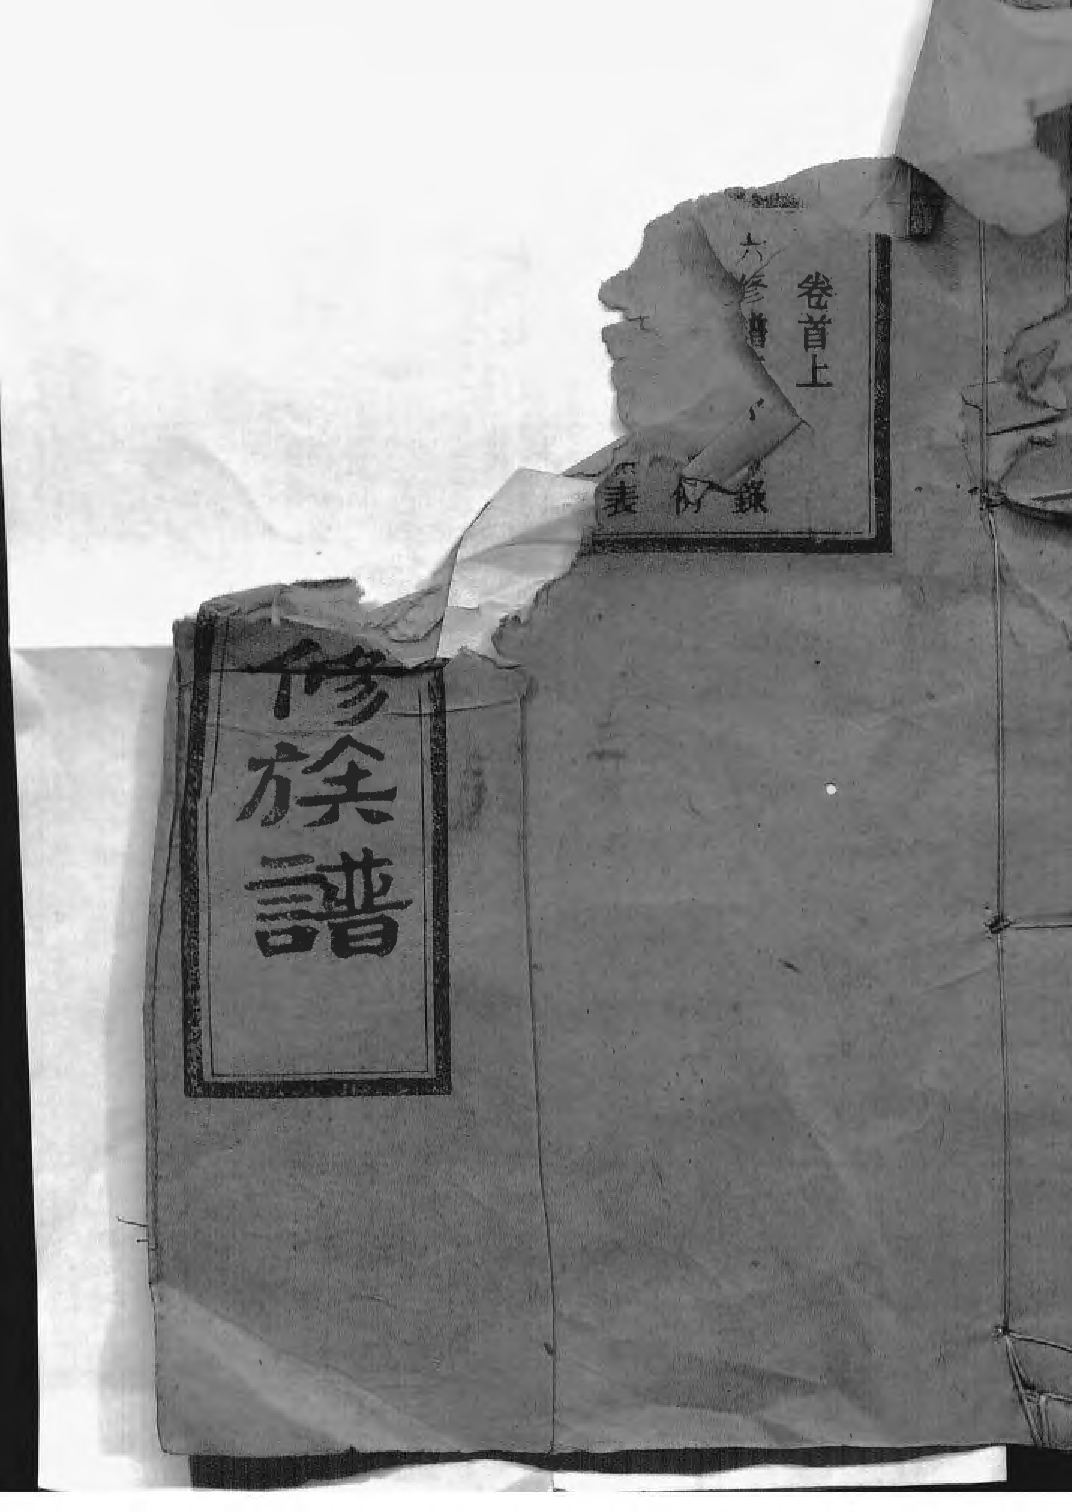 卷首上
六修譜
錄
例
表
修族譜